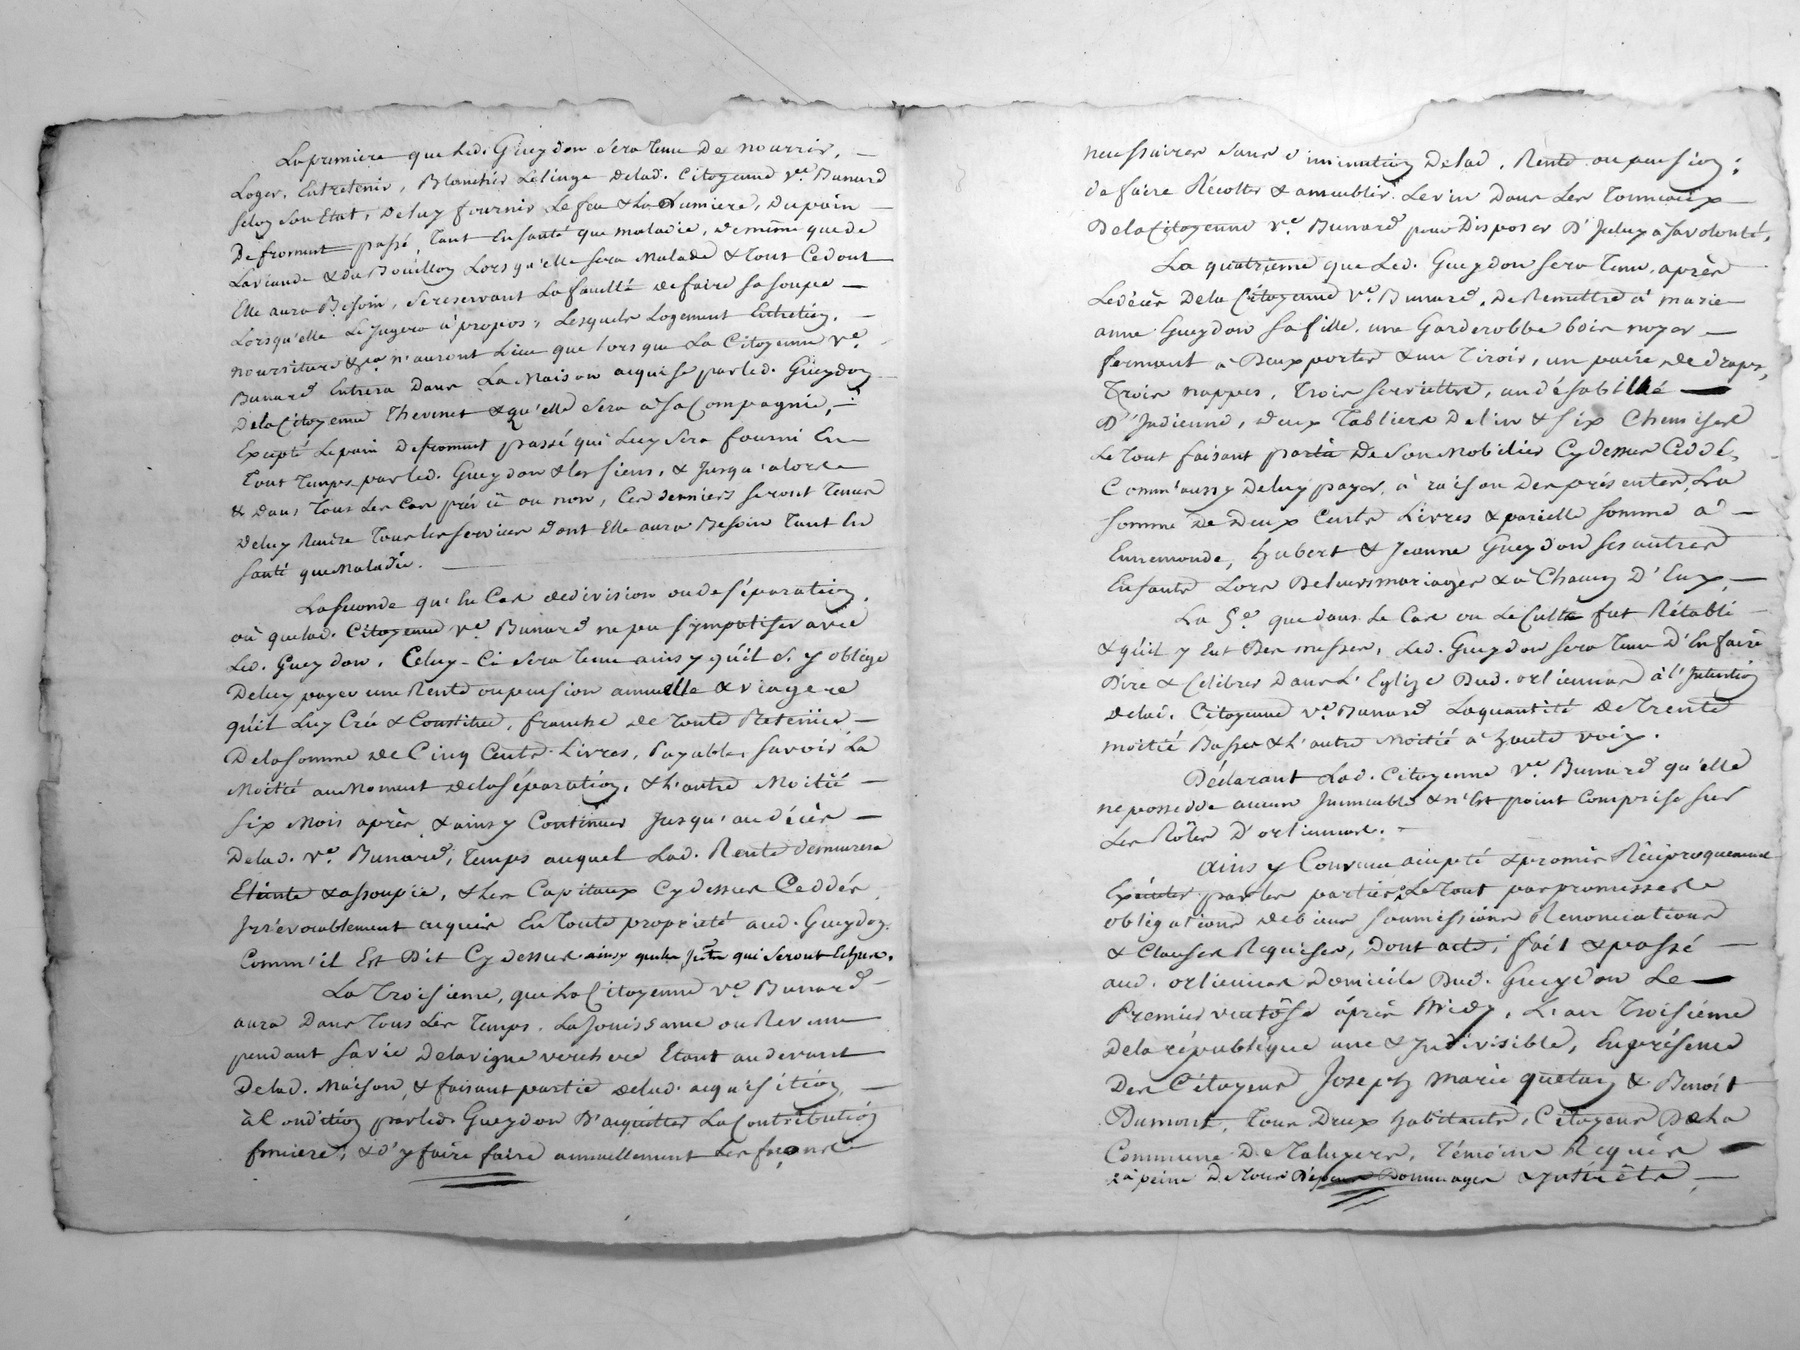 La premiere que led. Gueydon sera tenu de nourrir, —
Loger, Entretenir, Blanchir Le linge de lad. Citoyenne Ve. Bunard
selon son Etat, de luy fournir Le feu & La Lumiere, du pain —
De froment passé, tant En santé que maladie, de même que de
La viande & du Bouillon Lors qu'elle sera Malade & tout Ce dont
Elle aura Besoin, se reservant La faculté de faire sa soupe —
Lorsqu'elle Le jugera à propos, Lesquels Logement Entretien, —
nourriture &ca n'auront Lieu que lors que La Citoyenne Ve.
Bunard Entrera Dans La Maison acquise par led. Gueydon
de la Citoyenne Thevenet & qu'elle sera à sa Compagnie, —
Excepté Le pain de froment passé qui Luy sera fourni En
Tout Temps par led. Gueydon & les siens, & jusqu'alors
& dans tous Les Cas prévû ou non, Ces derniers seront Tenus
de luy Rendre Tous les services dont Elle aura Besoin Tant En
santé que Maladie. —
La seconde qu'En Cas de division ou de séparation,
où que lad. Citoyenne Ve. Bunard ne peu sympatiser avec
Led. Gueydon, Celuy-Ci sera tenu ainsy qu'il s'y oblige
De luy payer une Rente ou pension annuelle & viagere
qu'il Luy Crée & Constitue, franche de toute Retenüe —
De la somme de Cinq Cents Livres, Payable, savoir La
Moitié au Moment de la séparation, & L'autre Moitié —
six Mois après & ainsy Continuer jusqu'au décès —
De lad. Ve. Bunard, Temps auquel Lad. Rente demeurera
Eteinte & assoupie, & Les Capitaux Cy dessus Ceddés
Irrévocablement acquis En toute propriété aud. Gueydon,
Comm'il Est Dit Cy dessus ainsy que les qui seront Echus.
La Troisieme, que La Citoyenne Ve. Bunard —
aura Dans Tous Les Temps, La jouissance ou Revenu
pendant sa vie de la vigne verchere Etant au devant
De lad. Maison, & faisant partie de lad. acquisition, —
à Condition par led. Gueydon D'acquitter La Contribution
fonciere, & d'y faire faire annuellement Les façons
necessaires sans diminution de lad. Rente ou pension;
de faire Récolter & ameublir Le vin Dans Les Tonneaux
De la Citoyenne Ve. Bunard pour Disposer D'Iceluy à sa volonté,
La quatrieme que Led. Gueydon sera tenu, après
Le décès De la Citoyenne Ve. Bunard, de Remettre à marie
anne Gueydon sa fille, une Garderobbe bois noyer —
fermant à Deux portes & un tiroir, un paire de draps,
Trois nappes, trois serviettes, un désabillé —
D'Indienne, deux Tabliers De lin & six Chemises
Le tout faisant partie De son Mobilier Cy dessus Ceddé,
Comm'aussy De luy payer, à raison des présentes, La
somme de Deux Cents Livres & pareille somme à —
Ennemonde, Hubert & Jeanne Gueydon ses autres
Enfants Lors De leurs mariages & à Chacun D'Eux, —
La 5e. que dans le Cas ou Le Culte fut Rétabli —
& qu'il y Eut Des messes, Led. Gueydon sera tenu D'En faire
Dire & Célébrer Dans L'Eglize Dud. orlienas à l'Intention
de lad. Citoyenne Ve. Bunard La quantité de Trente
moitié Basses & L'autre Moitié à haute voix.
Déclarant Lad. Citoyenne Ve. Bunard qu'elle
ne possedde aucun Immeuble & n'Est point Comprise sur
Les Rôles D'orlienas. —
Ainsy Convenu accepté & promis Réciproquement
Exécuter par les parties Le tout par promesses
obligations de biens soumissions Renonciations
& Clauses Requises, dont acte, fait & passé —
aud. orlienas domicile Dud. Gueydon Le —
Premier ventôse après Midy, L'an Troisiéme
De la république une & Indivisible, En présence
Des Citoyens Joseph marie quetan & Benoît
Dumont, Tous Deux habitants, Citoyens De la
Commune De Taluyers, Témoins Requis —
& à peine De tous Dépens Dommages & Intérêts —